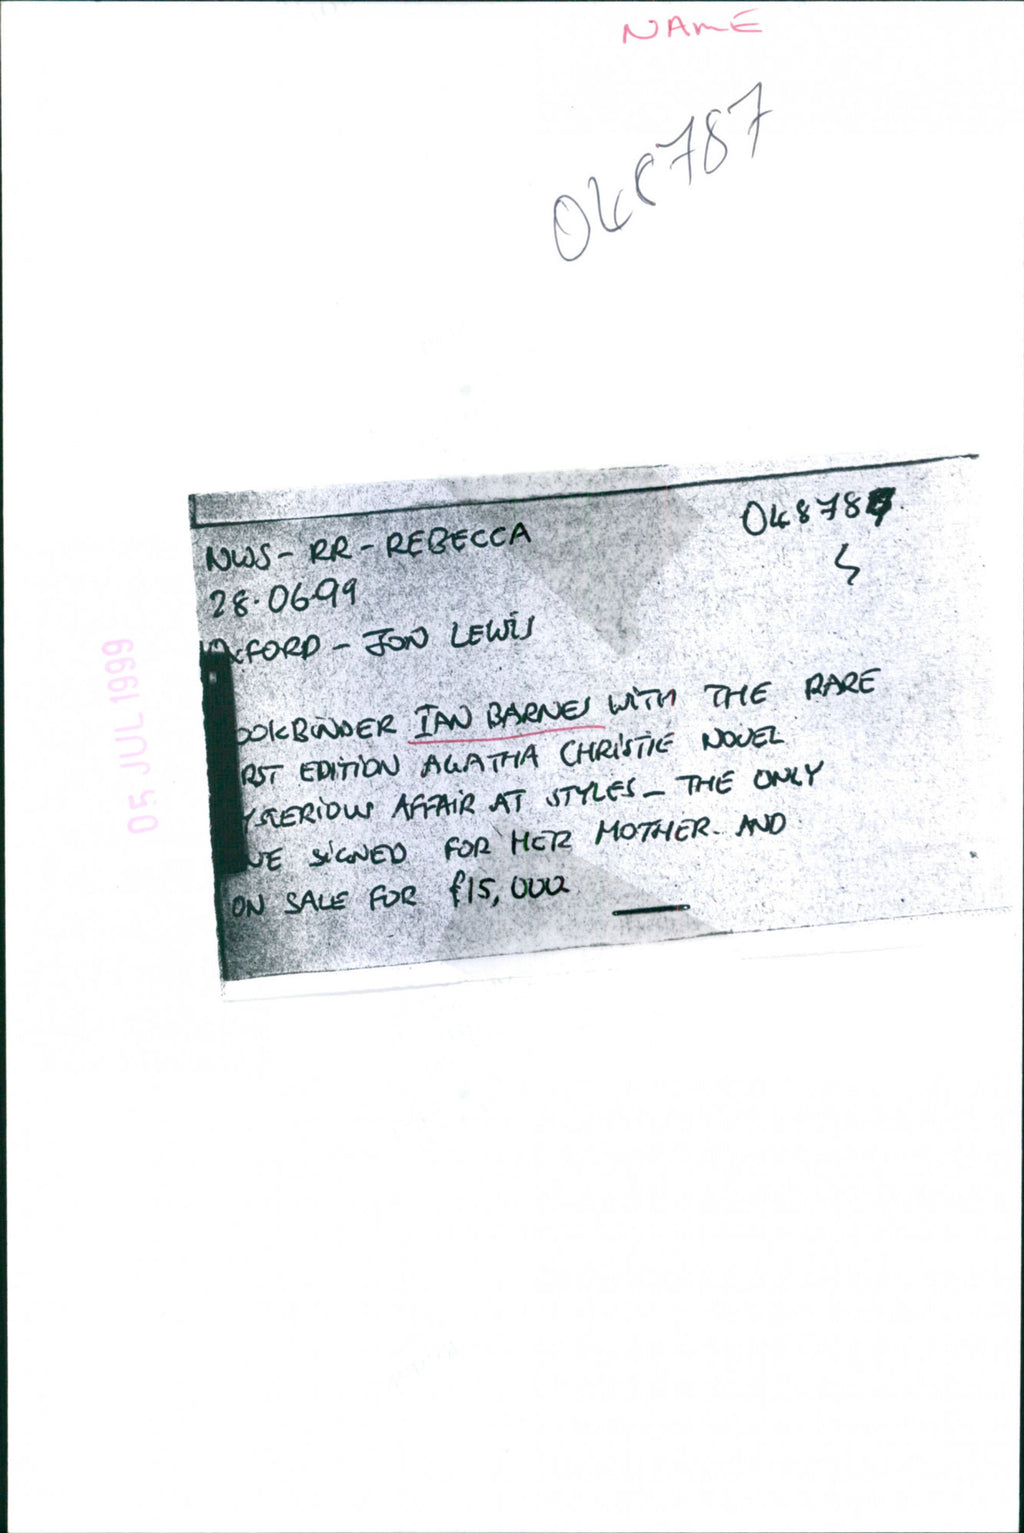 NAME
OK8787
NWS - RR - REBECCA
OK8787
S
28.06.99
OXFORD - JON LEWIS
OOKBINDER IAN BARNES WITH THE RARE
RST EDITION AGATHA CHRISTIE NOVEL
YSTERIOUS AFFAIR AT STYLES - THE ONLY
SIGNED FOR HER MOTHER. AND
ON SALE FOR £15,000
05 JUL 1999